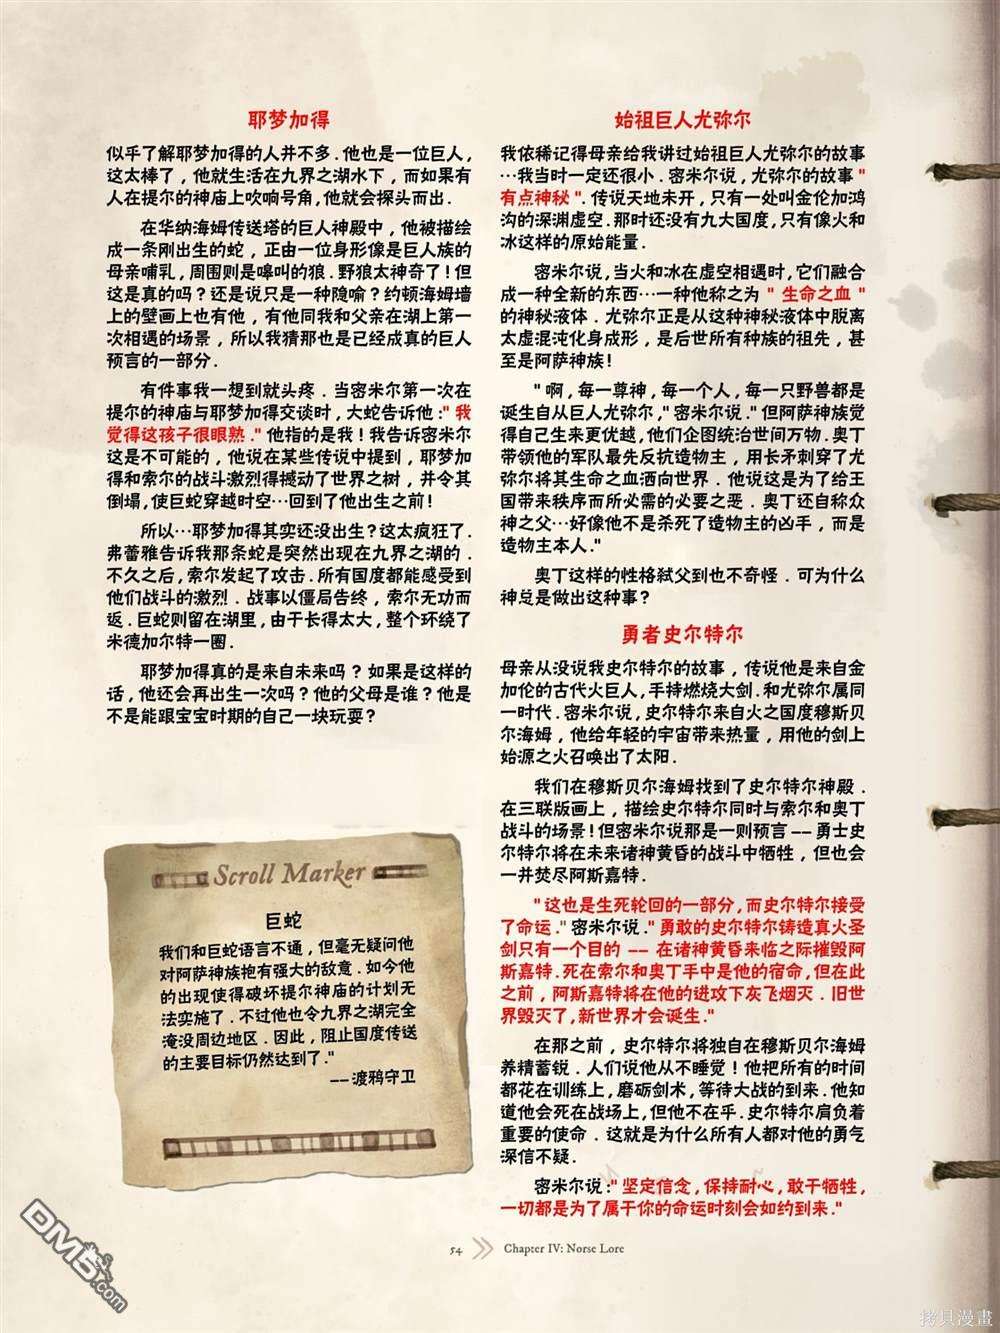 耶梦加得
似乎了解耶梦加得的人并不多.他也是一位巨人,
这太棒了,他就生活在九界之湖水下,而如果有
人在提尔的神庙上吹响号角,他就会探头而出.
在华纳海姆传送塔的巨人神殿中,他被描绘
成一条刚出生的蛇,正由一位身形像是巨人族的
母亲哺乳,周围则是嗥叫的狼.野狼太神奇了!但
这是真的吗?还是说只是一种隐喻?约顿海姆墙
上的壁画上也有他,有他同我和父亲在湖上第一
次相遇的场景,所以我猜那也是已经成真的巨人
预言的一部分.
有件事我一想到就头疼.当密米尔第一次在
提尔的神庙与耶梦加得交谈时,大蛇告诉他:"我
觉得这孩子很眼熟."他指的是我!我告诉密米尔
这是不可能的,他说在某些传说中提到,耶梦加
得和索尔的战斗激烈得撼动了世界之树,并令其
倒塌,使巨蛇穿越时空…回到了他出生之前!
所以…耶梦加得其实还没出生?这太疯狂了.
弗蕾雅告诉我那条蛇是突然出现在九界之湖的.
不久之后,索尔发起了攻击.所有国度都能感受到
他们战斗的激烈.战事以僵局告终,索尔无功而
返.巨蛇则留在湖里,由于长得太大,整个环绕了
米德加尔特一圈.
耶梦加得真的是来自未来吗?如果是这样的
话,他还会再出生一次吗?他的父母是谁?他是
不是能跟宝宝时期的自己一块玩耍?
Scroll Marker
巨蛇
我们和巨蛇语言不通,但毫无疑问他
对阿萨神族抱有强大的敌意.如今他
的出现使得破坏提尔神庙的计划无
法实施了.不过他也令九界之湖完全
淹没周边地区.因此,阻止国度传送
的主要目标仍然达到了."
--渡鸦守卫
始祖巨人尤弥尔
我依稀记得母亲给我讲过始祖巨人尤弥尔的故事
…我当时一定还很小.密米尔说,尤弥尔的故事"
有点神秘".传说天地未开,只有一处叫金伦加鸿
沟的深渊虚空.那时还没有九大国度,只有像火和
冰这样的原始能量.
密米尔说,当火和冰在虚空相遇时,它们融合
成一种全新的东西…一种他称之为"生命之血"
的神秘液体.尤弥尔正是从这种神秘液体中脱离
太虚混沌化身成形,是后世所有种族的祖先,甚
至是阿萨神族!
"啊,每一尊神,每一个人,每一只野兽都是
诞生自从巨人尤弥尔,"密米尔说."但阿萨神族觉
得自己生来更优越,他们企图统治世间万物.奥丁
带领他的军队最先反抗造物主,用长矛刺穿了尤
弥尔将其生命之血洒向世界.他说这是为了给王
国带来秩序而所必需的必要之恶.奥丁还自称众
神之父…好像他不是杀死了造物主的凶手,而是
造物主本人."
奥丁这样的性格弑父到也不奇怪.可为什么
神总是做出这种事?
勇者史尔特尔
母亲从没说我史尔特尔的故事,传说他是来自金
加伦的古代火巨人,手持燃烧大剑.和尤弥尔属同
一时代.密米尔说,史尔特尔来自火之国度穆斯贝
尔海姆,他给年轻的宇宙带来热量,用他的剑上
始源之火召唤出了太阳.
我们在穆斯贝尔海姆找到了史尔特尔神殿.
在三联版画上,描绘史尔特尔同时与索尔和奥丁
战斗的场景!但密米尔说那是一则预言--勇士史
尔特尔将在未来诸神黄昏的战斗中牺牲,但也会
一并焚尽阿斯嘉特.
"这也是生死轮回的一部分,而史尔特尔接受
了命运."密米尔说."勇敢的史尔特尔铸造真火圣
剑只有一个目的--在诸神黄昏来临之际摧毁阿
斯嘉特.死在索尔和奥丁手中是他的宿命,但在此
之前,阿斯嘉特将在他的进攻下灰飞烟灭.旧世
界毁灭了,新世界才会诞生."
在那之前,史尔特尔将独自在穆斯贝尔海姆
养精蓄锐.人们说他从不睡觉!他把所有的时间
都花在训练上,磨砺剑术,等待大战的到来.他知
道他会死在战场上,但他不在乎.史尔特尔肩负着
重要的使命.这就是为什么所有人都对他的勇气
深信不疑.
密米尔说:"坚定信念,保持耐心,敢于牺牲,
一切都是为了属于你的命运时刻会如约到来."
54 Chapter IV: Norse Lore
DM5.com
拷貝漫畫